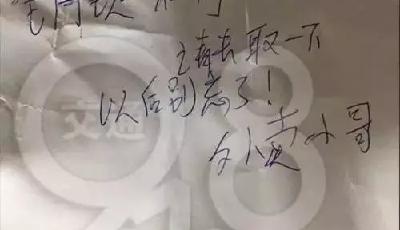 请去取一下
以后别忘了!
外卖小哥
交通
918